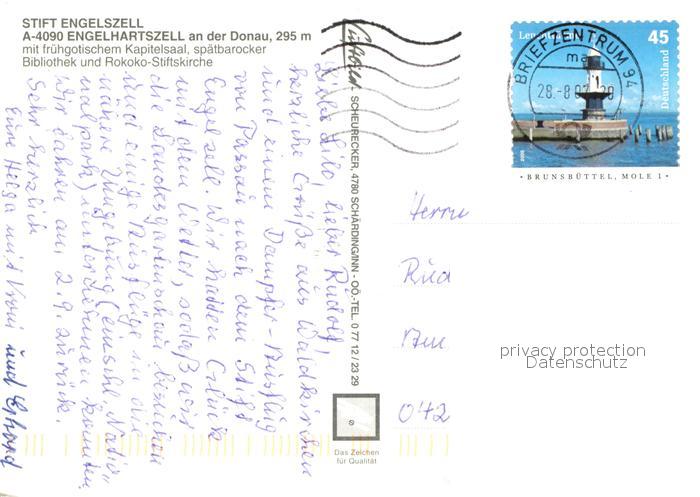 STIFT ENGELSZELL
A-4090 ENGELHARTSZELL an der Donau, 295 m
mit frühgotischem Kapitelsaal, spätbarocker
Bibliothek und Rokoko-Stiftskirche
Luftbild - SCHEURECKER, 4780 SCHÄRDING/INN - OÖ,-TEL. 0 77 12 / 23 29
Liebe Lilo, lieber Rudolf,
herzliche Grüße aus Waldkirchen
und einem Dampfer-Ausflug
von Passau nach dem Stift
Engelszell. Wir hatten Glück
mit dem Wetter, sodaß wir
die Landesgartenschau besuchen
und einige Ausflüge in die
nähere Umgebung (einschl. Natio-
nalpark) unternehmen konnten.
Wir fahren am 2.9. zurück.
Sehr herzlich
Eure Helga mit Vroni und Erhard
BRIEFZENTRUM 94
ma
28.-8.07
45
Deutschland
BRUNSBÜTTEL, MOLE 1
Herrn
Rud
Am
042
privacy protection
Datenschutz
Das Zeichen
für Qualität